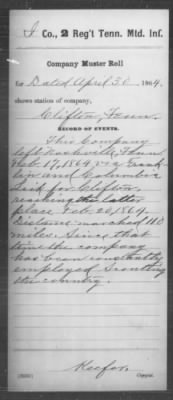 I Co., 2 Reg't Tenn. Mtd. Inf.
Company Muster Roll
for Dated April 30, 1864.
shows station of company,
Clifton, Tenn.
RECORD OF EVENTS.
This Company
left Nashville, Tenn
Feb. 17, 1864 via Frank
lin and Columbia
for Clifton,
reaching the latter
place Feb. 26, 1864.
Distance marched 110
miles. Since that
time the company
has been constantly
employed scouting
the country.
Keefer.
Copyist.